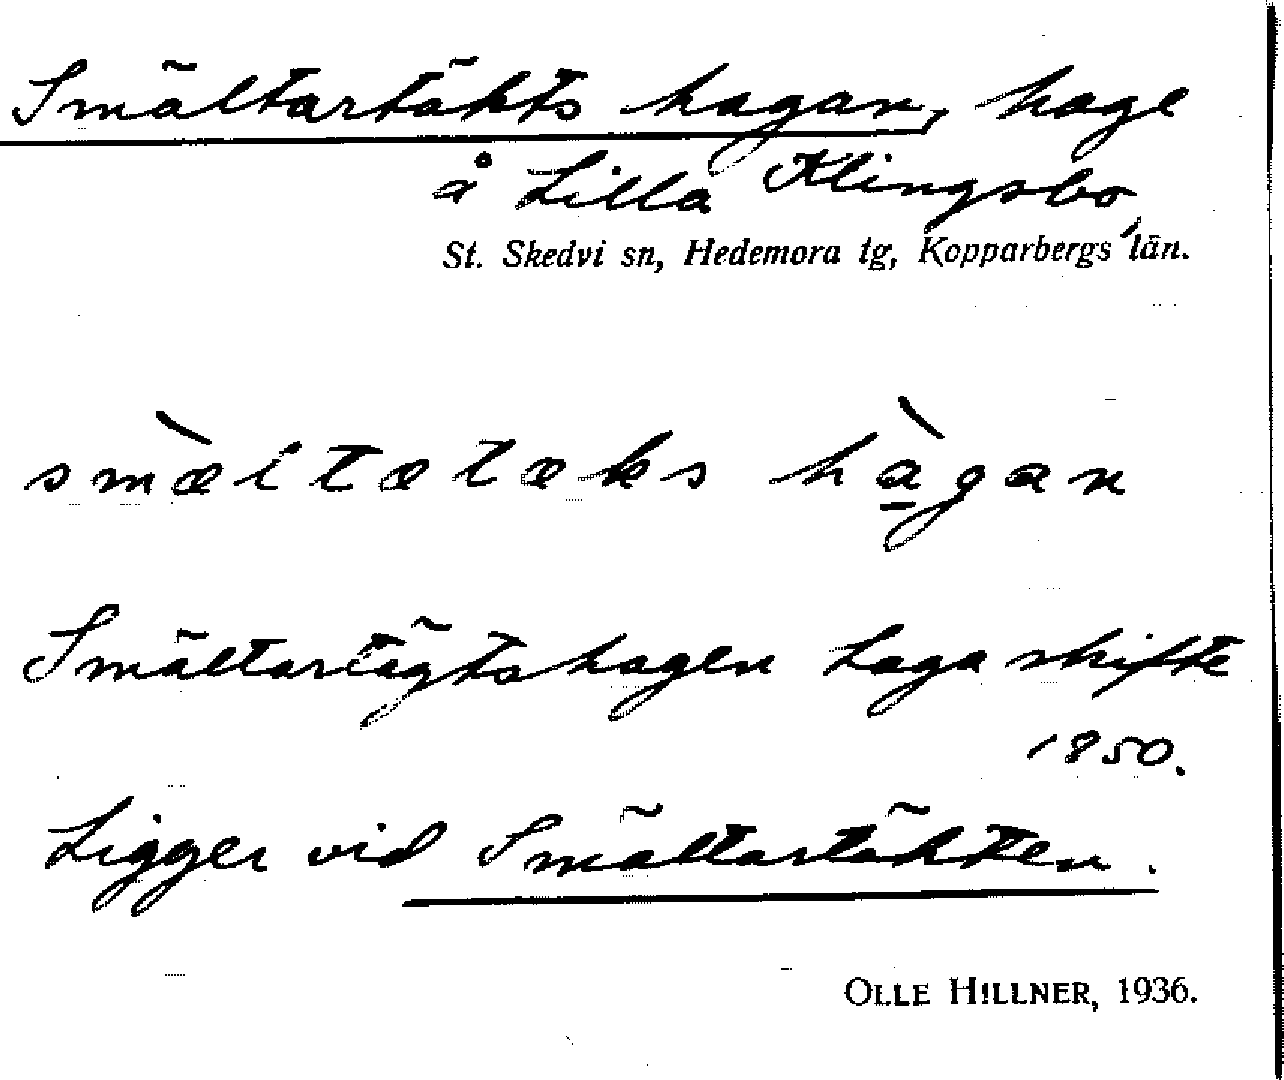 Smältartäkts hagan, hage
å Lilla Klingsbo,
St. Skedvi sn, Hedemora tg, Kopparbergs län.
smæ̀ltætæks hà̱gan
Smältartägtshagen Laga skifte
1850.
Ligger vid Smältartäkten.
OLLE HILLNER, 1936.